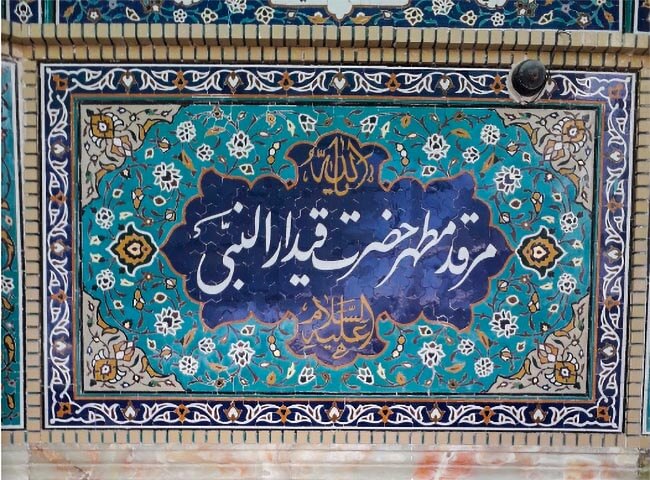 یا الله
مرقد مطهر حضرت قیدار النبی
علیه السلام